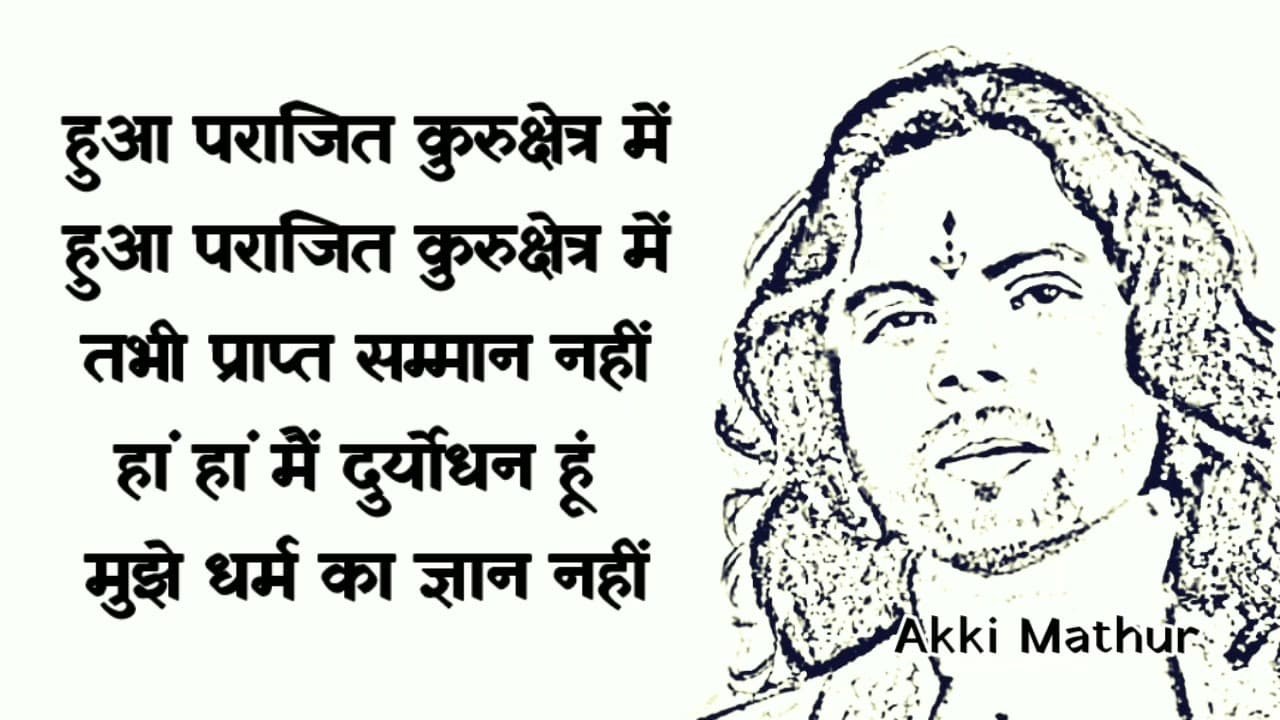 हुआ पराजित कुरुक्षेत्र में
हुआ पराजित कुरुक्षेत्र में
तभी प्राप्त सम्मान नहीं
हां हां मैं दुर्योधन हूं
मुझे धर्म का ज्ञान नहीं
Akki Mathur